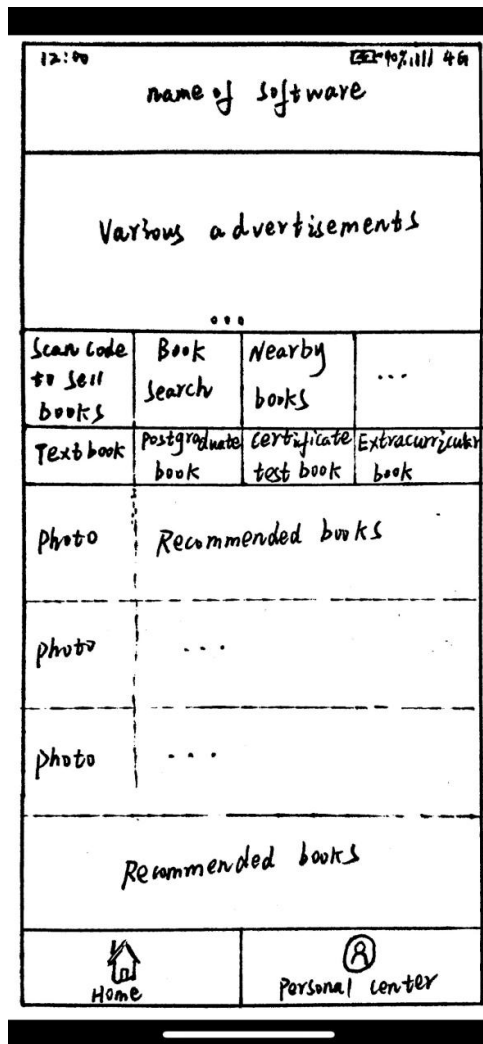 12:00 90% 4G
name of software
Various advertisements
...
Scan Code to Sell books
Book Search
Nearby books
...
Textbook
Postgraduate book
certificate test book
Extracurricular book
photo
Recommended books
photo
...
photo
...
Recommended books
Home
Personal center